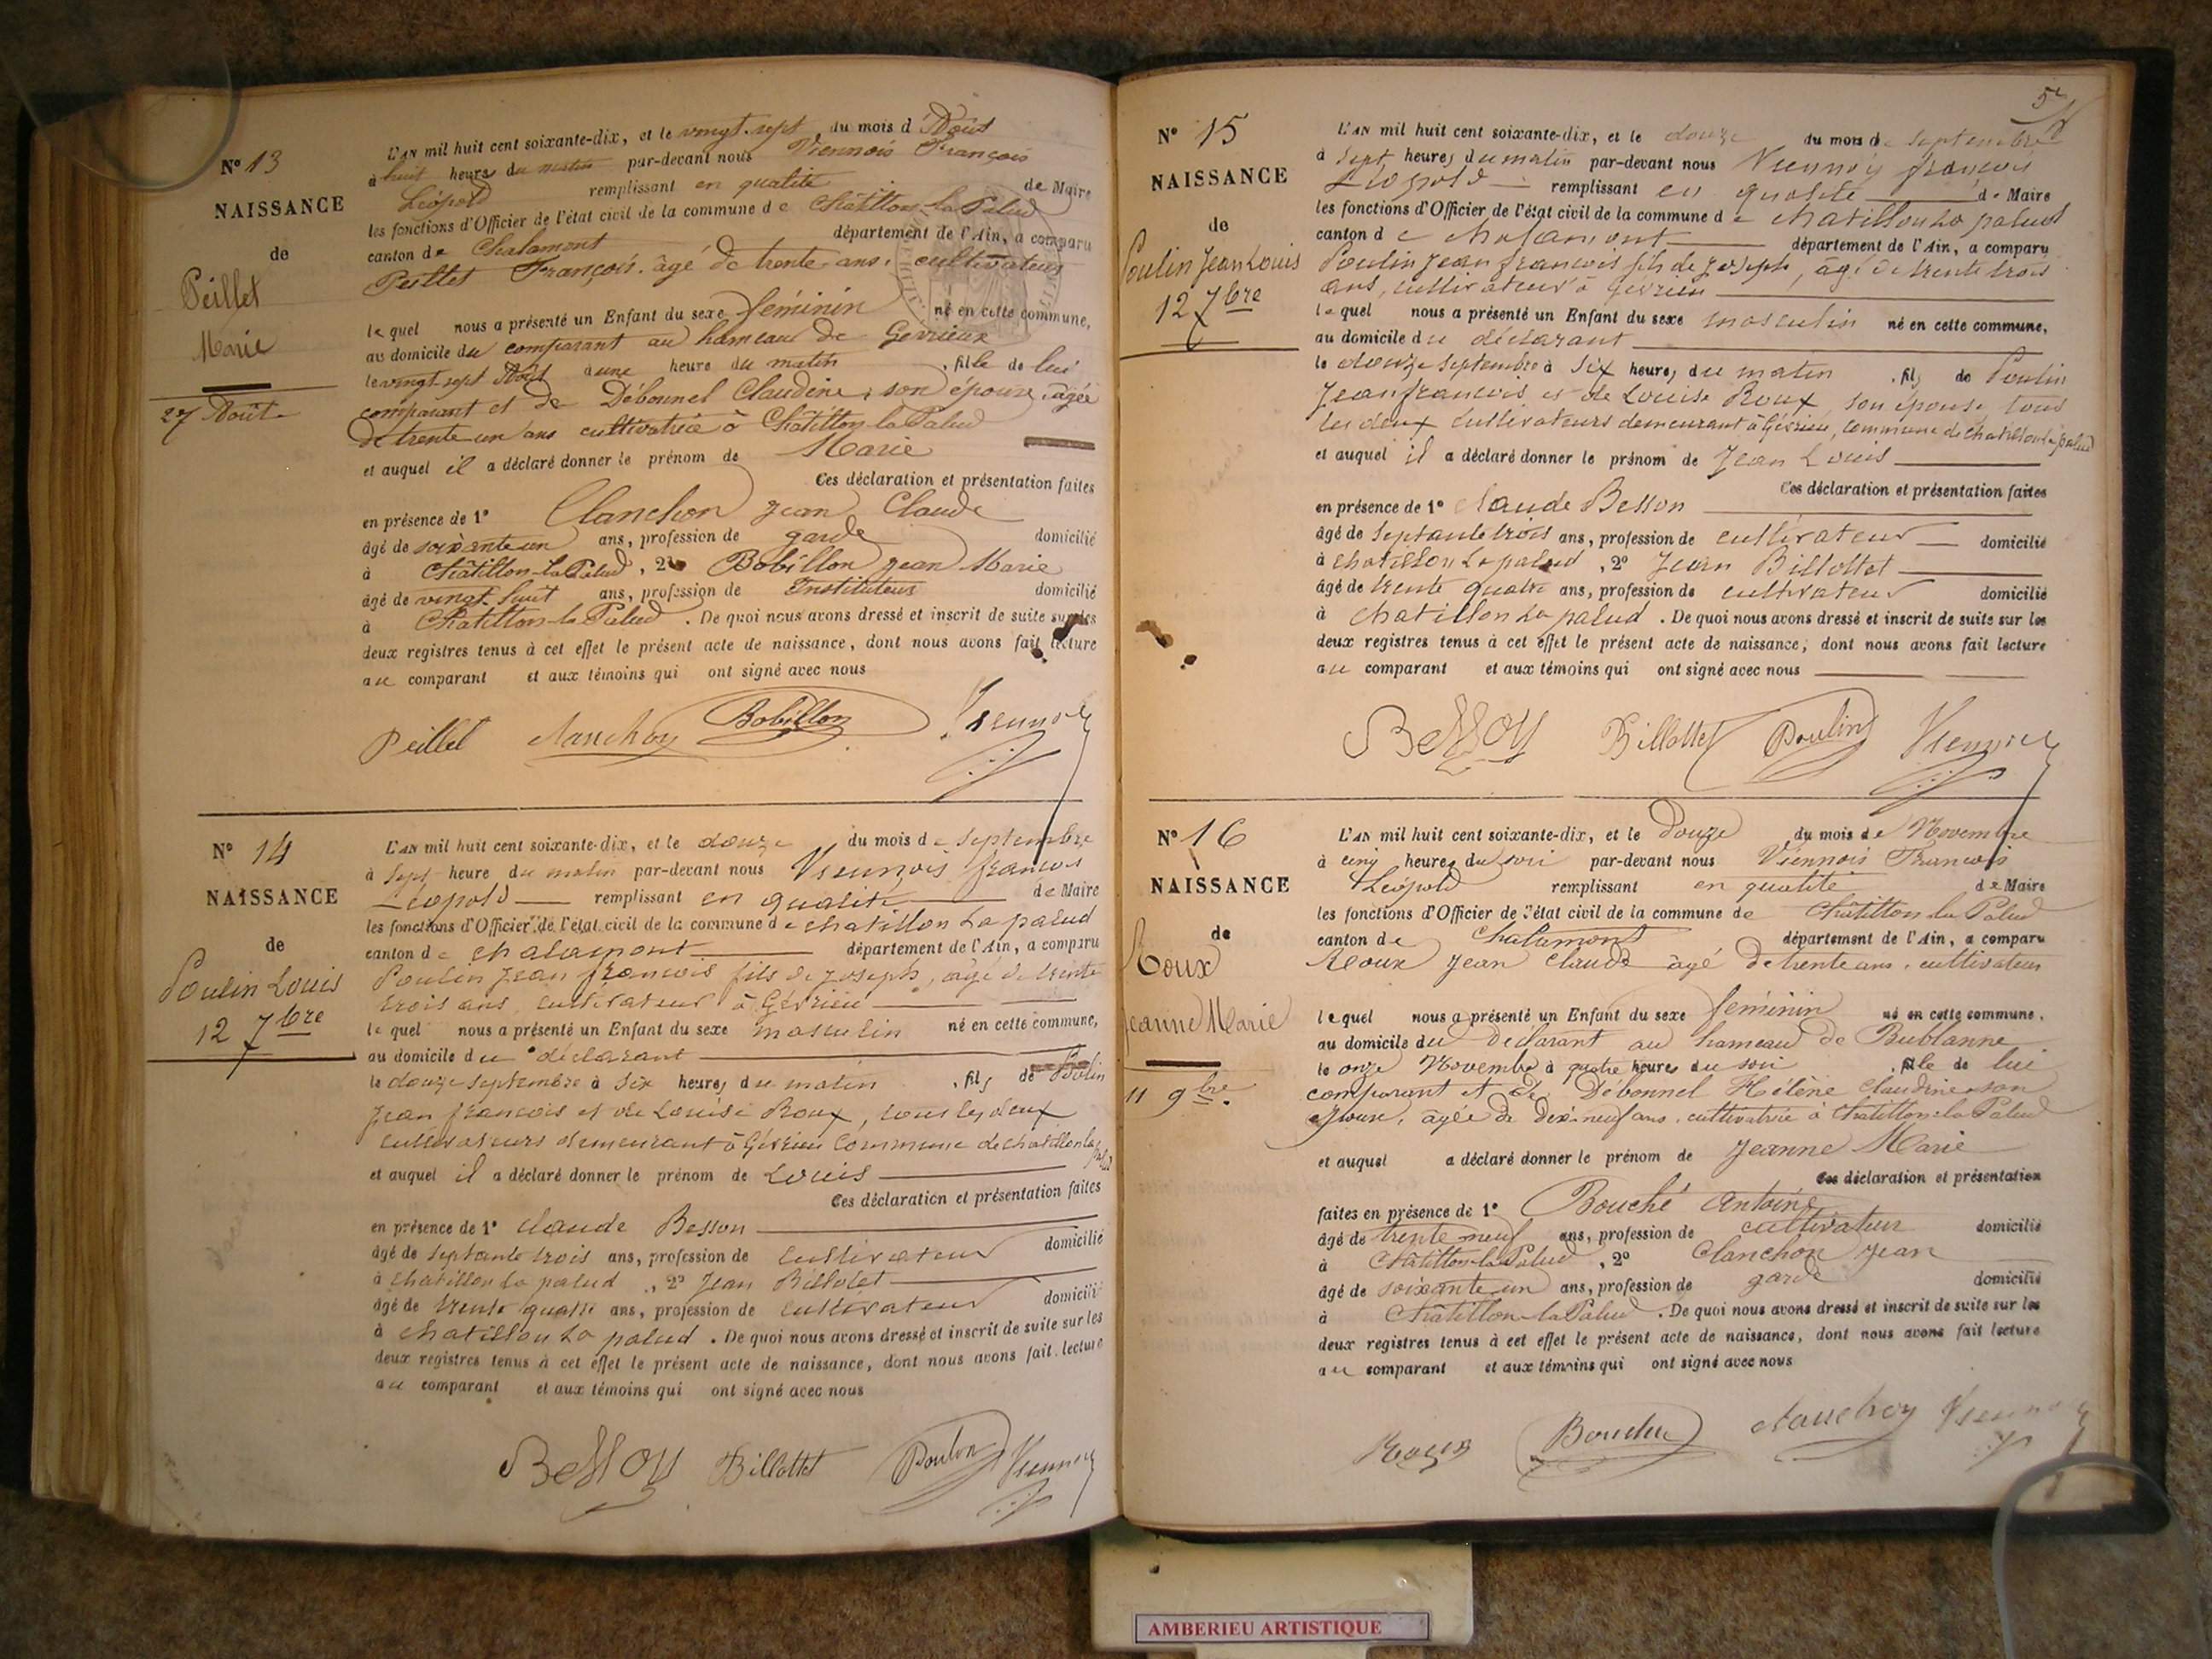 N° 13
NAISSANCE
de
Peillet
Marie
27 Août
L'AN mil huit cent soixante-dix, et le vingt-sept, du mois d'Août
à huit heures du matin par-devant nous Viennois François
Léopold remplissant en qualité de Maire
les fonctions d'Officier de l'état civil de la commune de Châtillon-la-Palud
canton de Chalamont département de l'Ain, a comparu
Peillet François, âgé de trente ans, cultivateur
lequel nous a présenté un Enfant du sexe féminin né en cette commune,
au domicile du comparant au hameau de Gevrieux
le vingt-sept Août à une heure du matin, fille de lui
comparant et de Débonnel Claudine, son épouse, âgée
de trente un ans cultivatrice à Châtillon-la-Palud
et auquel il a déclaré donner le prénom de Marie
Ces déclaration et présentation faites
en présence de 1° Clanchon Jean Claude
âgé de soixante un ans, profession de garde domicilié
à Châtillon-la-Palud, 2° Bobillon Jean Marie
âgé de vingt-huit ans, profession de Instituteur domicilié
à Châtillon-la-Palud. De quoi nous avons dressé et inscrit de suite sur les
deux registres tenus à cet effet le présent acte de naissance, dont nous avons fait lecture
au comparant et aux témoins qui ont signé avec nous
Peillet Clanchon Bobillon Viennois
N° 14
NAISSANCE
de
Poulin Louis
12 7bre
L'AN mil huit cent soixante-dix, et le douze du mois de septembre
à sept heure du matin par-devant nous Viennois francois
Léopold remplissant en qualité de Maire
les fonctions d'Officier de l'état civil de la commune de chatillon La palud
canton de chalamont département de l'Ain, a comparu
Poulin Jean francois fils de Joseph, âgé de trente
trois ans, cultivateur à Gévrieu
lequel nous a présenté un Enfant du sexe masculin né en cette commune,
au domicile du déclarant
le douze septembre à six heures du matin, fils de Polin
Jean francois et de Louise Roux, tous les deux
cultivateurs demeurant à Gévrieu commune de chatillon la palud
et auquel il a déclaré donner le prénom de Louis
Ces déclaration et présentation faites
en présence de 1° Claude Besson
âgé de septante trois ans, profession de cultivateur domicilié
à chatillon La palud, 2° Jean Billolet
âgé de trente quatre ans, profession de cultivateur domicilié
à chatillon La palud. De quoi nous avons dressé et inscrit de suite sur les
deux registres tenus à cet effet le présent acte de naissance, dont nous avons fait lecture
au comparant et aux témoins qui ont signé avec nous
Besson Billottet Poulin Viennois
N° 15
NAISSANCE
de
Poulin Jean Louis
12 7bre
L'AN mil huit cent soixante-dix, et le douze du mois de septembre
à sept heures du matin par-devant nous Viennois francois
Léopold remplissant en qualité de Maire
les fonctions d'Officier de l'état civil de la commune de chatillon La palud
canton de chalamont département de l'Ain, a comparu
Poulin Jean francois fils de Joseph, âgé de trente trois
ans, cultivateur à Gevrieu
lequel nous a présenté un Enfant du sexe masculin né en cette commune,
au domicile du déclarant
le douze septembre à six heures du matin, fils de Poulin
Jean francois et de Louise Roux son épouse tous
les deux cultivateurs demeurant à Gévrieu, commune de chatillon la palud
et auquel il a déclaré donner le prénom de Jean Louis
Ces déclaration et présentation faites
en présence de 1° Claude Besson
âgé de septante trois ans, profession de cultivateur domicilié
à chatillon La palud, 2° Jean Billottet
âgé de trente quatre ans, profession de cultivateur domicilié
à chatillon La palud. De quoi nous avons dressé et inscrit de suite sur les
deux registres tenus à cet effet le présent acte de naissance, dont nous avons fait lecture
au comparant et aux témoins qui ont signé avec nous
Besson Billottet Poulin Viennois
N° 16
NAISSANCE
de
Roux
Jeanne Marie
11 9bre.
L'AN mil huit cent soixante-dix, et le Douze du mois de Novembre
à cinq heures du soir par-devant nous Viennois François
Léopold remplissant en qualité de Maire
les fonctions d'Officier de l'état civil de la commune de Châtillon-la-Palud
canton de Chalamont département de l'Ain, a comparu
Roux Jean Claude âgé de trente ans, cultivateur
lequel nous a présenté un Enfant du sexe féminin né en cette commune,
au domicile du Déclarant au hameau de Bublanne
le onze Novembre à quatre heures du soir, fille de lui
comparant et de Débonnel Hélène Claudine, son
épouse, âgée de dix-neuf ans, cultivatrice à Châtillon-la-Palud
et auquel a déclaré donner le prénom de Jeanne Marie
Ces déclaration et présentation
faites en présence de 1° Bouché Antoine
âgé de trente neuf ans, profession de cultivateur domicilié
à Châtillon-la-Palud, 2° Clanchon Jean
âgé de soixante un ans, profession de garde domicilié
à Châtillon-la-Palud. De quoi nous avons dressé et inscrit de suite sur les
deux registres tenus à cet effet le présent acte de naissance, dont nous avons fait lecture
au comparant et aux témoins qui ont signé avec nous
Roux Bouché Clanchon Viennois
AMBERIEU ARTISTIQUE